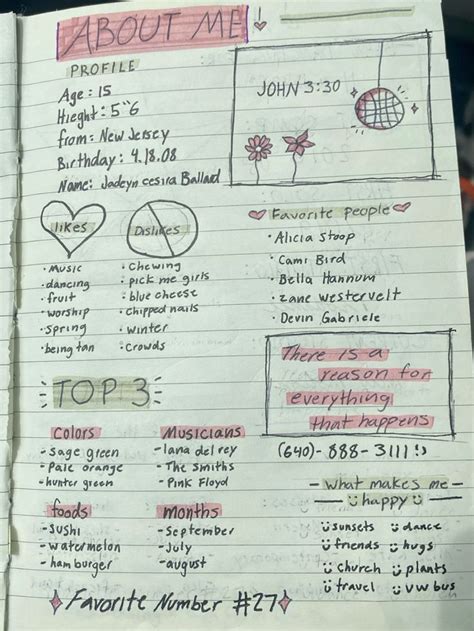 ABOUT ME!
PROFILE
Age: 15
Hieght: 5"6
from: New Jersey
Birthday: 4.18.08
Name: Jadeyn cesira Ballard
JOHN 3:30
likes
• Music
• dancing
• fruit
• worship
• spring
• being tan
Dislikes
• Chewing
• pick me girls
• blue cheese
• Chipped nails
• winter
• Crowds
Favorite People
• Alicia Stoop
• Cami Bird
• Bella Hannum
• Zane Westervelt
• Devin Gabriele
There is a
reason for
everything
that happens
(640)-888-3111!
TOP 3
Colors
- sage green
- Pale orange
- hunter green
Musicians
- lana del rey
- The Smiths
- Pink Floyd
foods
- sushi
- watermelon
- hamburger
months
- September
- July
- august
- what makes me -
happy
sunsets
dance
friends
hugs
church
plants
travel
vw bus
Favorite Number #27